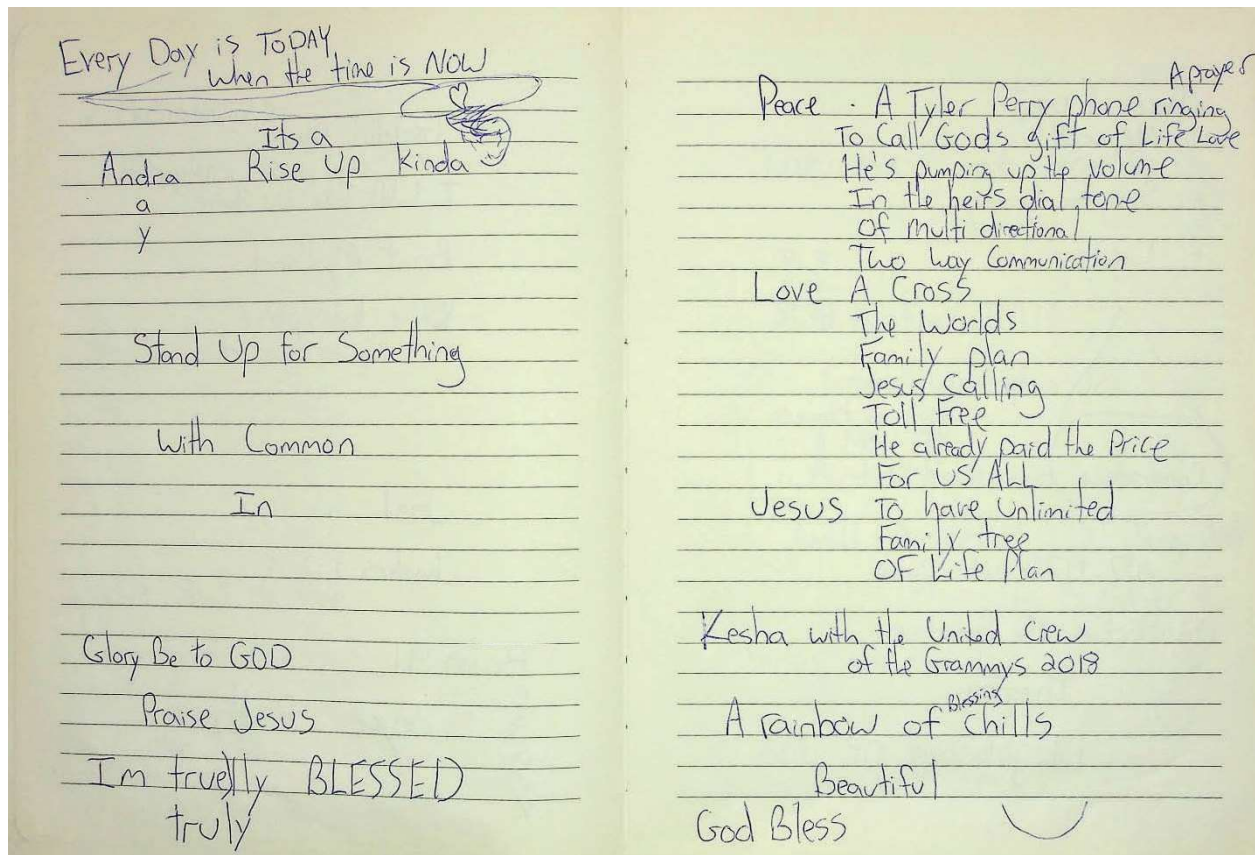 Every Day is TODAY
When the time is NOW
Its a
Andra Rise Up Kinda
a
y
Stand Up for Something
With Common
In
Glory Be to GOD
Praise Jesus
Im truelly BLESSED
truly
A prayer
Peace . A Tyler Perry phone ringing
To Call Gods gift of Life Love
He's pumping up the volume
In the heirs dial tone
Of multi directional
Two way Communication
Love A Cross
The Worlds
Family plan
Jesus Calling
Toll Free
He already paid the Price
For US ALL
Jesus To have Unlimited
Family tree
OF Life Plan
Kesha with the United Crew
of the Grammys 2018
Blessing
A rainbow of chills
Beautiful
God Bless